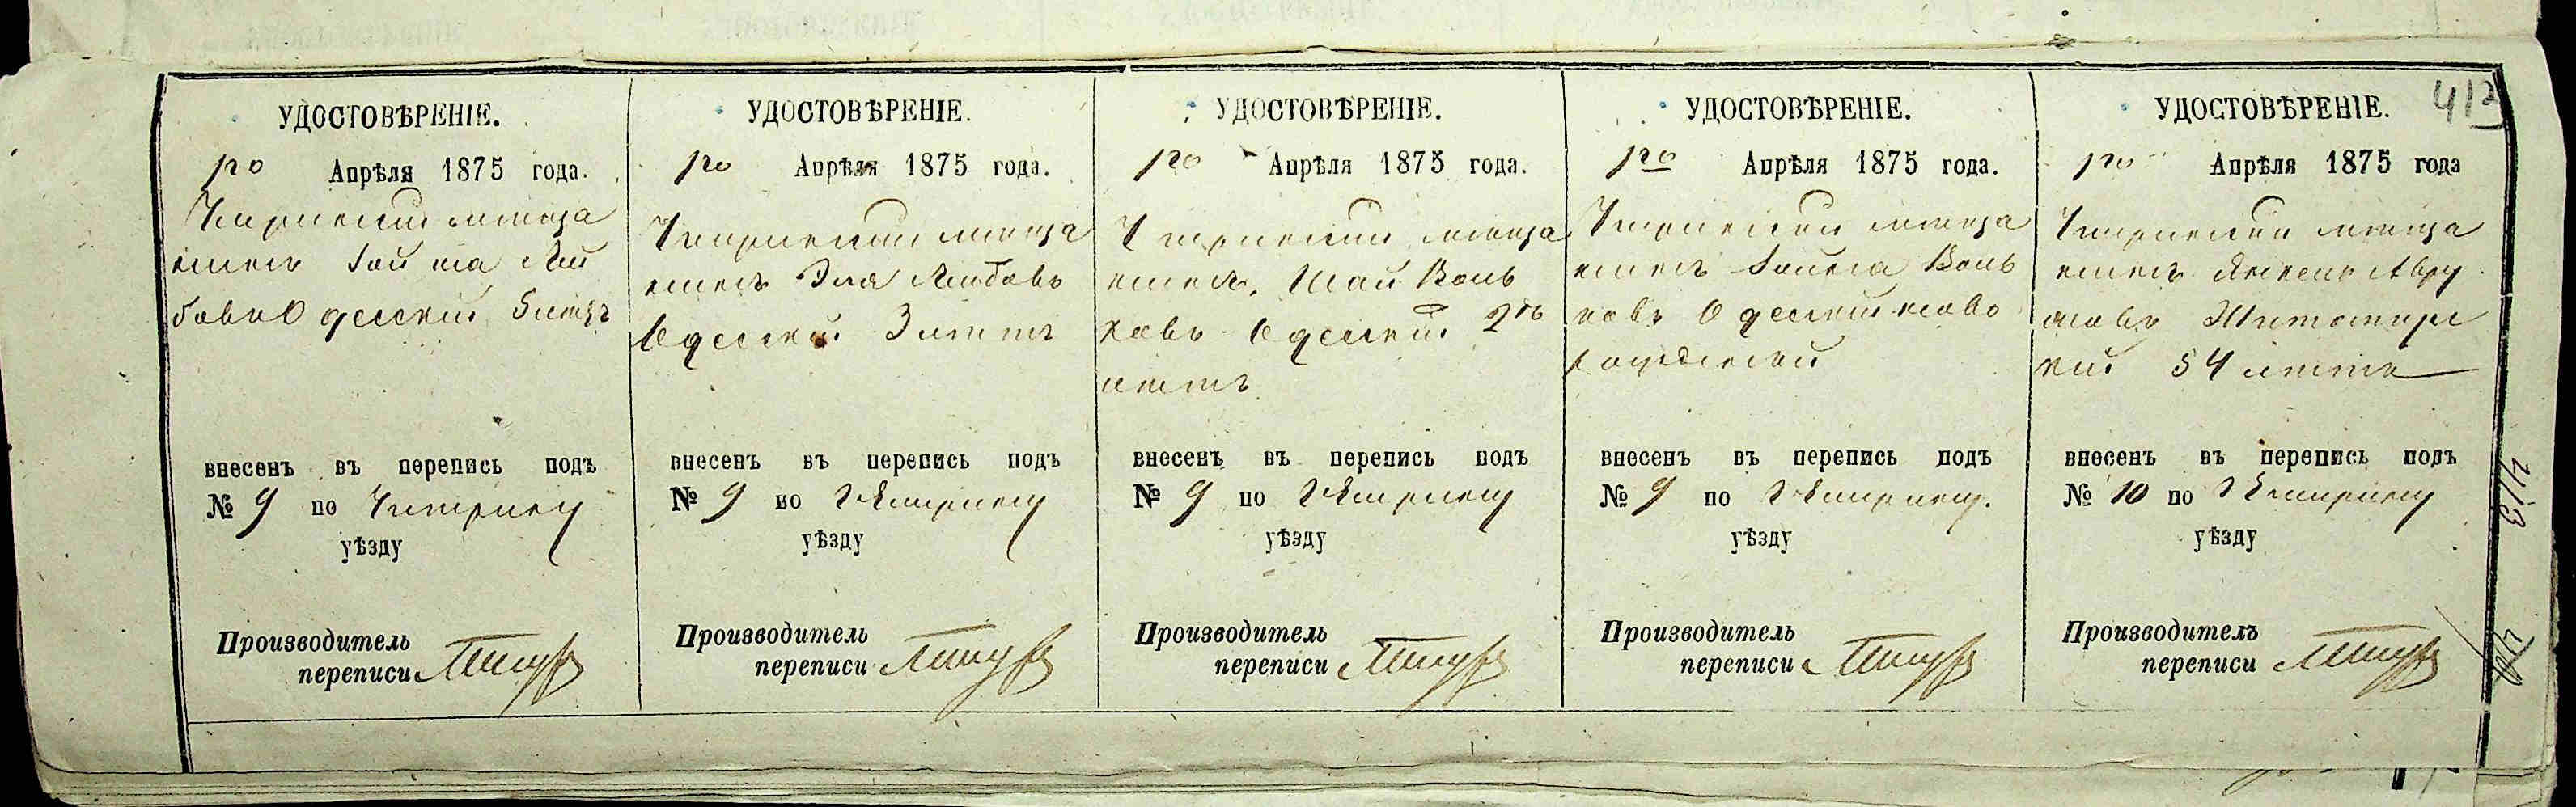 412
УДОСТОВѢРЕНІЕ.
1го Апрѣля 1875 года.
Чигринскій мѣща
нинъ
бовъ Одесскій 5 лѣтъ
внесенъ въ перепись подъ
№ 9 по Чигрину
уѣзду
Производитель
переписи
УДОСТОВѢРЕНІЕ.
1го Апрѣля 1875 года.
Чигринскій мѣща
нинъ Эля Лейбовъ
Одесскій 3 лѣтъ
внесенъ въ перепись подъ
№ 9 по Чигрину
уѣзду
Производитель
переписи
УДОСТОВѢРЕНІЕ.
1го Апрѣля 1875 года.
Чигринскій мѣща
нинъ Шая Воль
ковъ Одесскій 2хъ
лѣтъ
внесенъ въ перепись подъ
№ 9 по Чигрину
уѣзду
Производитель
переписи
УДОСТОВѢРЕНІЕ.
1го Апрѣля 1875 года.
Чигринскій мѣща
нинъ Воль
ковъ Одесскій ново
рожденный
внесенъ въ перепись подъ
№ 9 по Чигрину
уѣзду
Производитель
переписи
УДОСТОВѢРЕНІЕ.
1го Апрѣля 1875 года
Чигринскій мѣща
нинъ Авру
мовъ Житомирс
кій 54 лѣтъ
внесенъ въ перепись подъ
№ 10 по Чигрину
уѣзду
Производитель
переписи